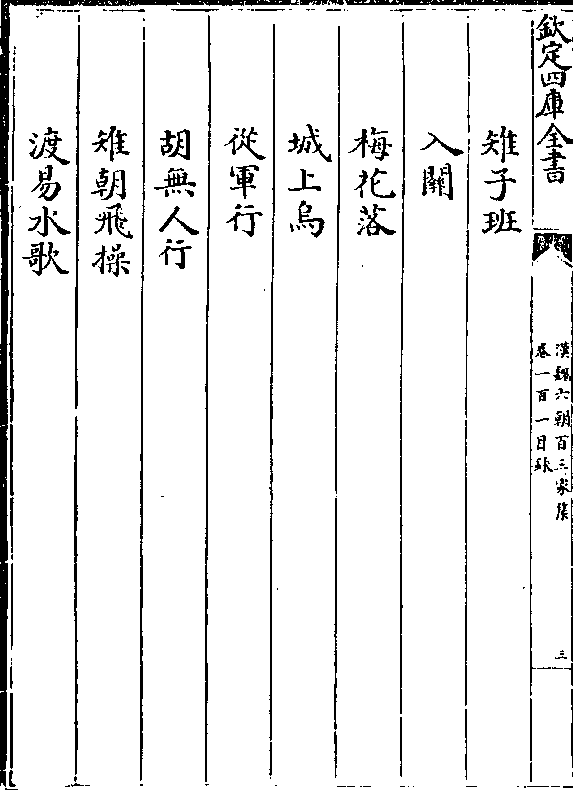 欽定四庫全書
漢魏六朝百三家集
卷一百一目録
三
雉子班
入關
梅花落
城上烏
從軍行
胡無人行
雉朝飛操
渡易水歌